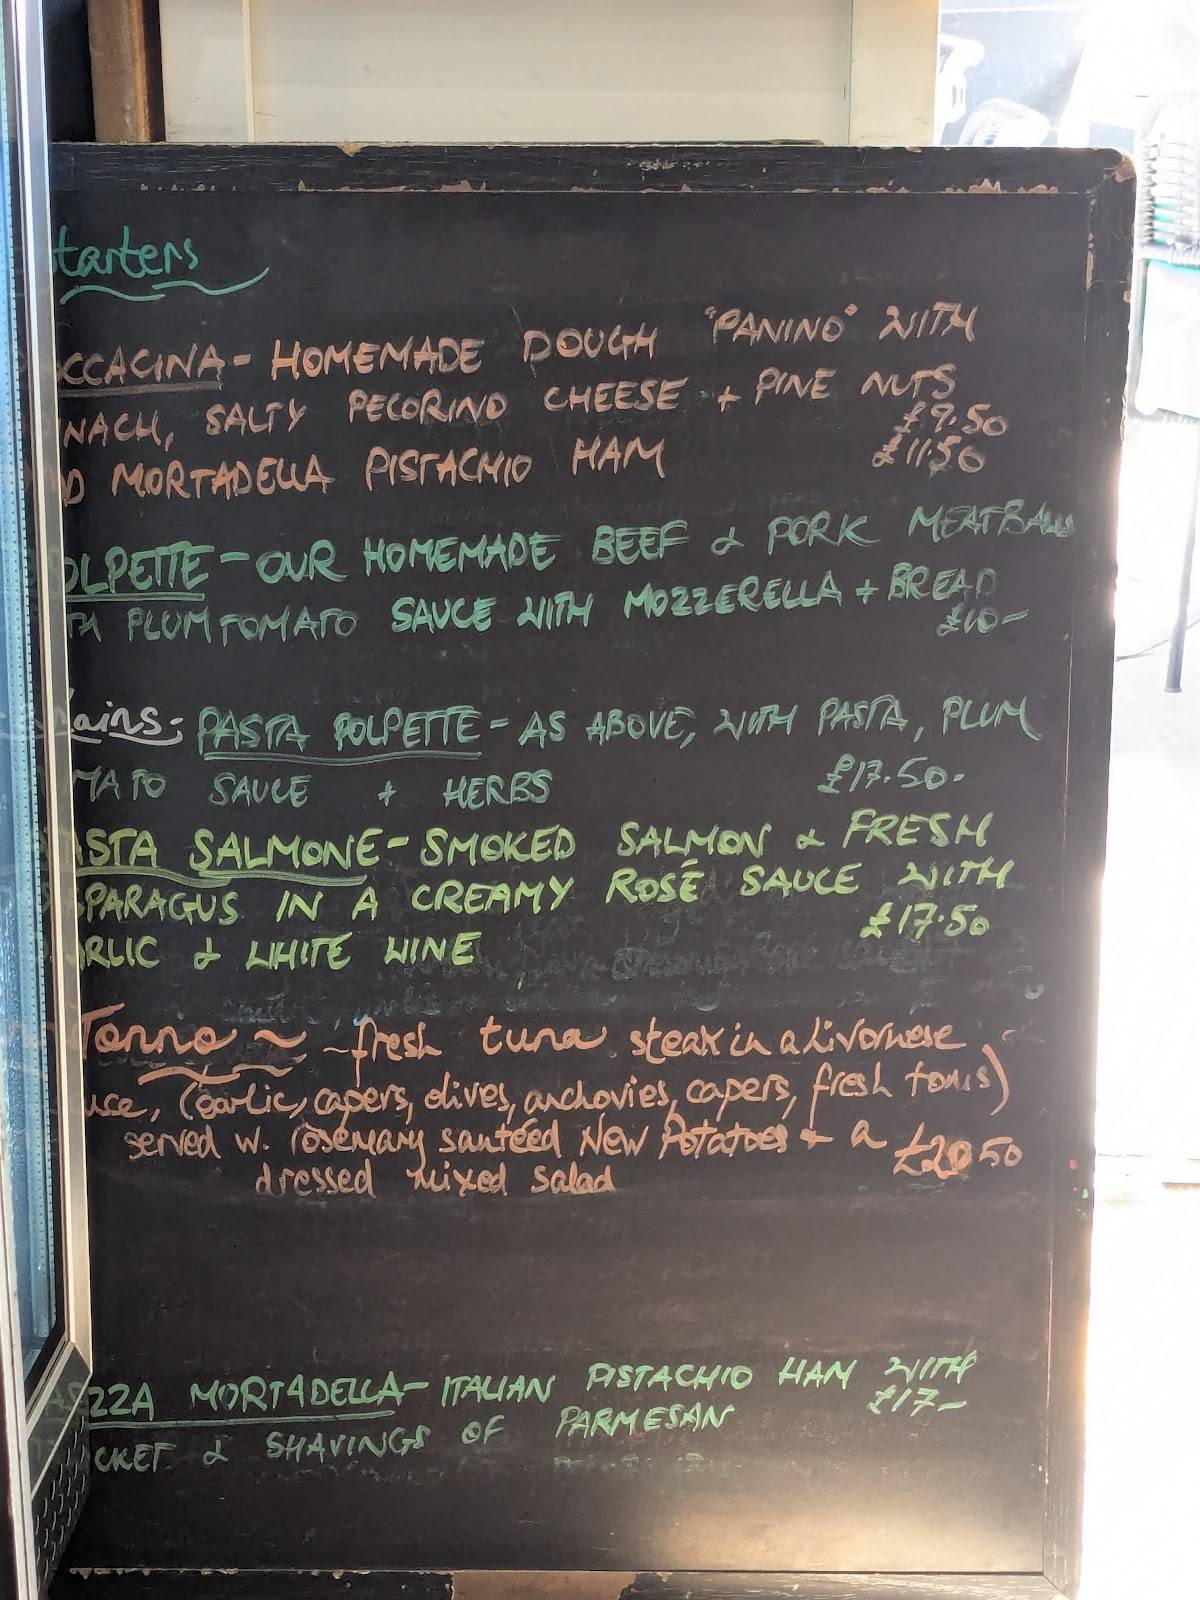 tarters
CCACINA - HOMEMADE DOUGH "PANINO" WITH
NACH, SALTY PECORINO CHEESE + PINE NUTS
£9.50
D MORTADELLA PISTACHIO HAM £11.50
OLPETTE - OUR HOMEMADE BEEF & PORK MEATBALLS
TH PLUM TOMATO SAUCE WITH MOZZERELLA + BREAD
£10-
ains- PASTA POLPETTE - AS ABOVE, WITH PASTA, PLUM
MATO SAUCE + HERBS £17.50-
ASTA SALMONE - SMOKED SALMON & FRESH
SPARAGUS IN A CREAMY ROSÉ SAUCE WITH
RLIC & WHITE WINE £17.50
Tonno ~ - fresh tuna steak in a Livornese
uce, (garlic, capers, olives, anchovies, capers, fresh toms)
served w. rosemary sautéed New Potatoes + a £20.50
dressed mixed salad
ZZA MORTADELLA - ITALIAN PISTACHIO HAM WITH
CKET & SHAVINGS OF PARMESAN £17-